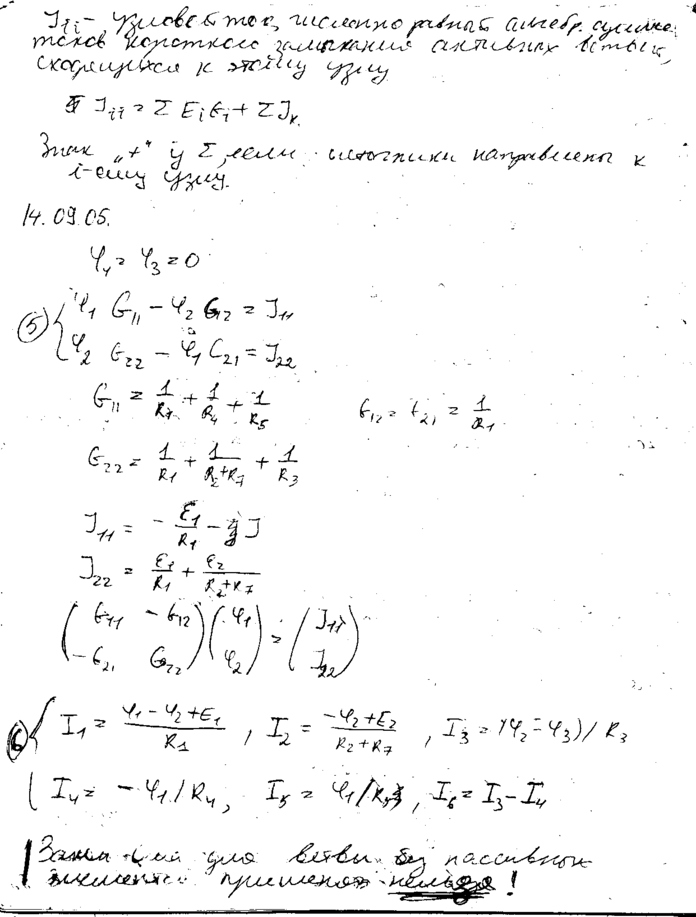 J_ii - узловой ток, численно равный алгебр. сумме
токов короткого замыкания активных ветвей,
сходящихся к этому узлу
J_ii = Σ E_i G_i + Σ J_k.
Знак „+" у Σ, если источники направлены к
i-ому узлу.
14.09.05.
φ_4 = φ_3 = 0
⑤ { φ_1 G_11 - φ_2 G_12 = J_11
φ_2 G_22 - φ_1 G_21 = J_22
G_11 = 1/R_7 + 1/R_4 + 1/R_5    G_12 = G_21 = 1/R_1
G_22 = 1/R_1 + 1/(R_2+R_7) + 1/R_3
J_11 = - E_1/R_1 - J
J_22 = E_1/R_1 + E_2/(R_2+R_7)
(G_11 -G_12; -G_21 G_22) (φ_1; φ_2) = (J_11; J_22)
⑥ { I_1 = (φ_1 - φ_2 + E_1)/R_1 , I_2 = (-φ_2 + E_2)/(R_2+R_7) , I_3 = (φ_2 - φ_3)/R_3
I_4 = -φ_1/R_4, I_5 = φ_1/R_5, I_6 = I_3 - I_4
для ветви без пассивных
применять нельзя!